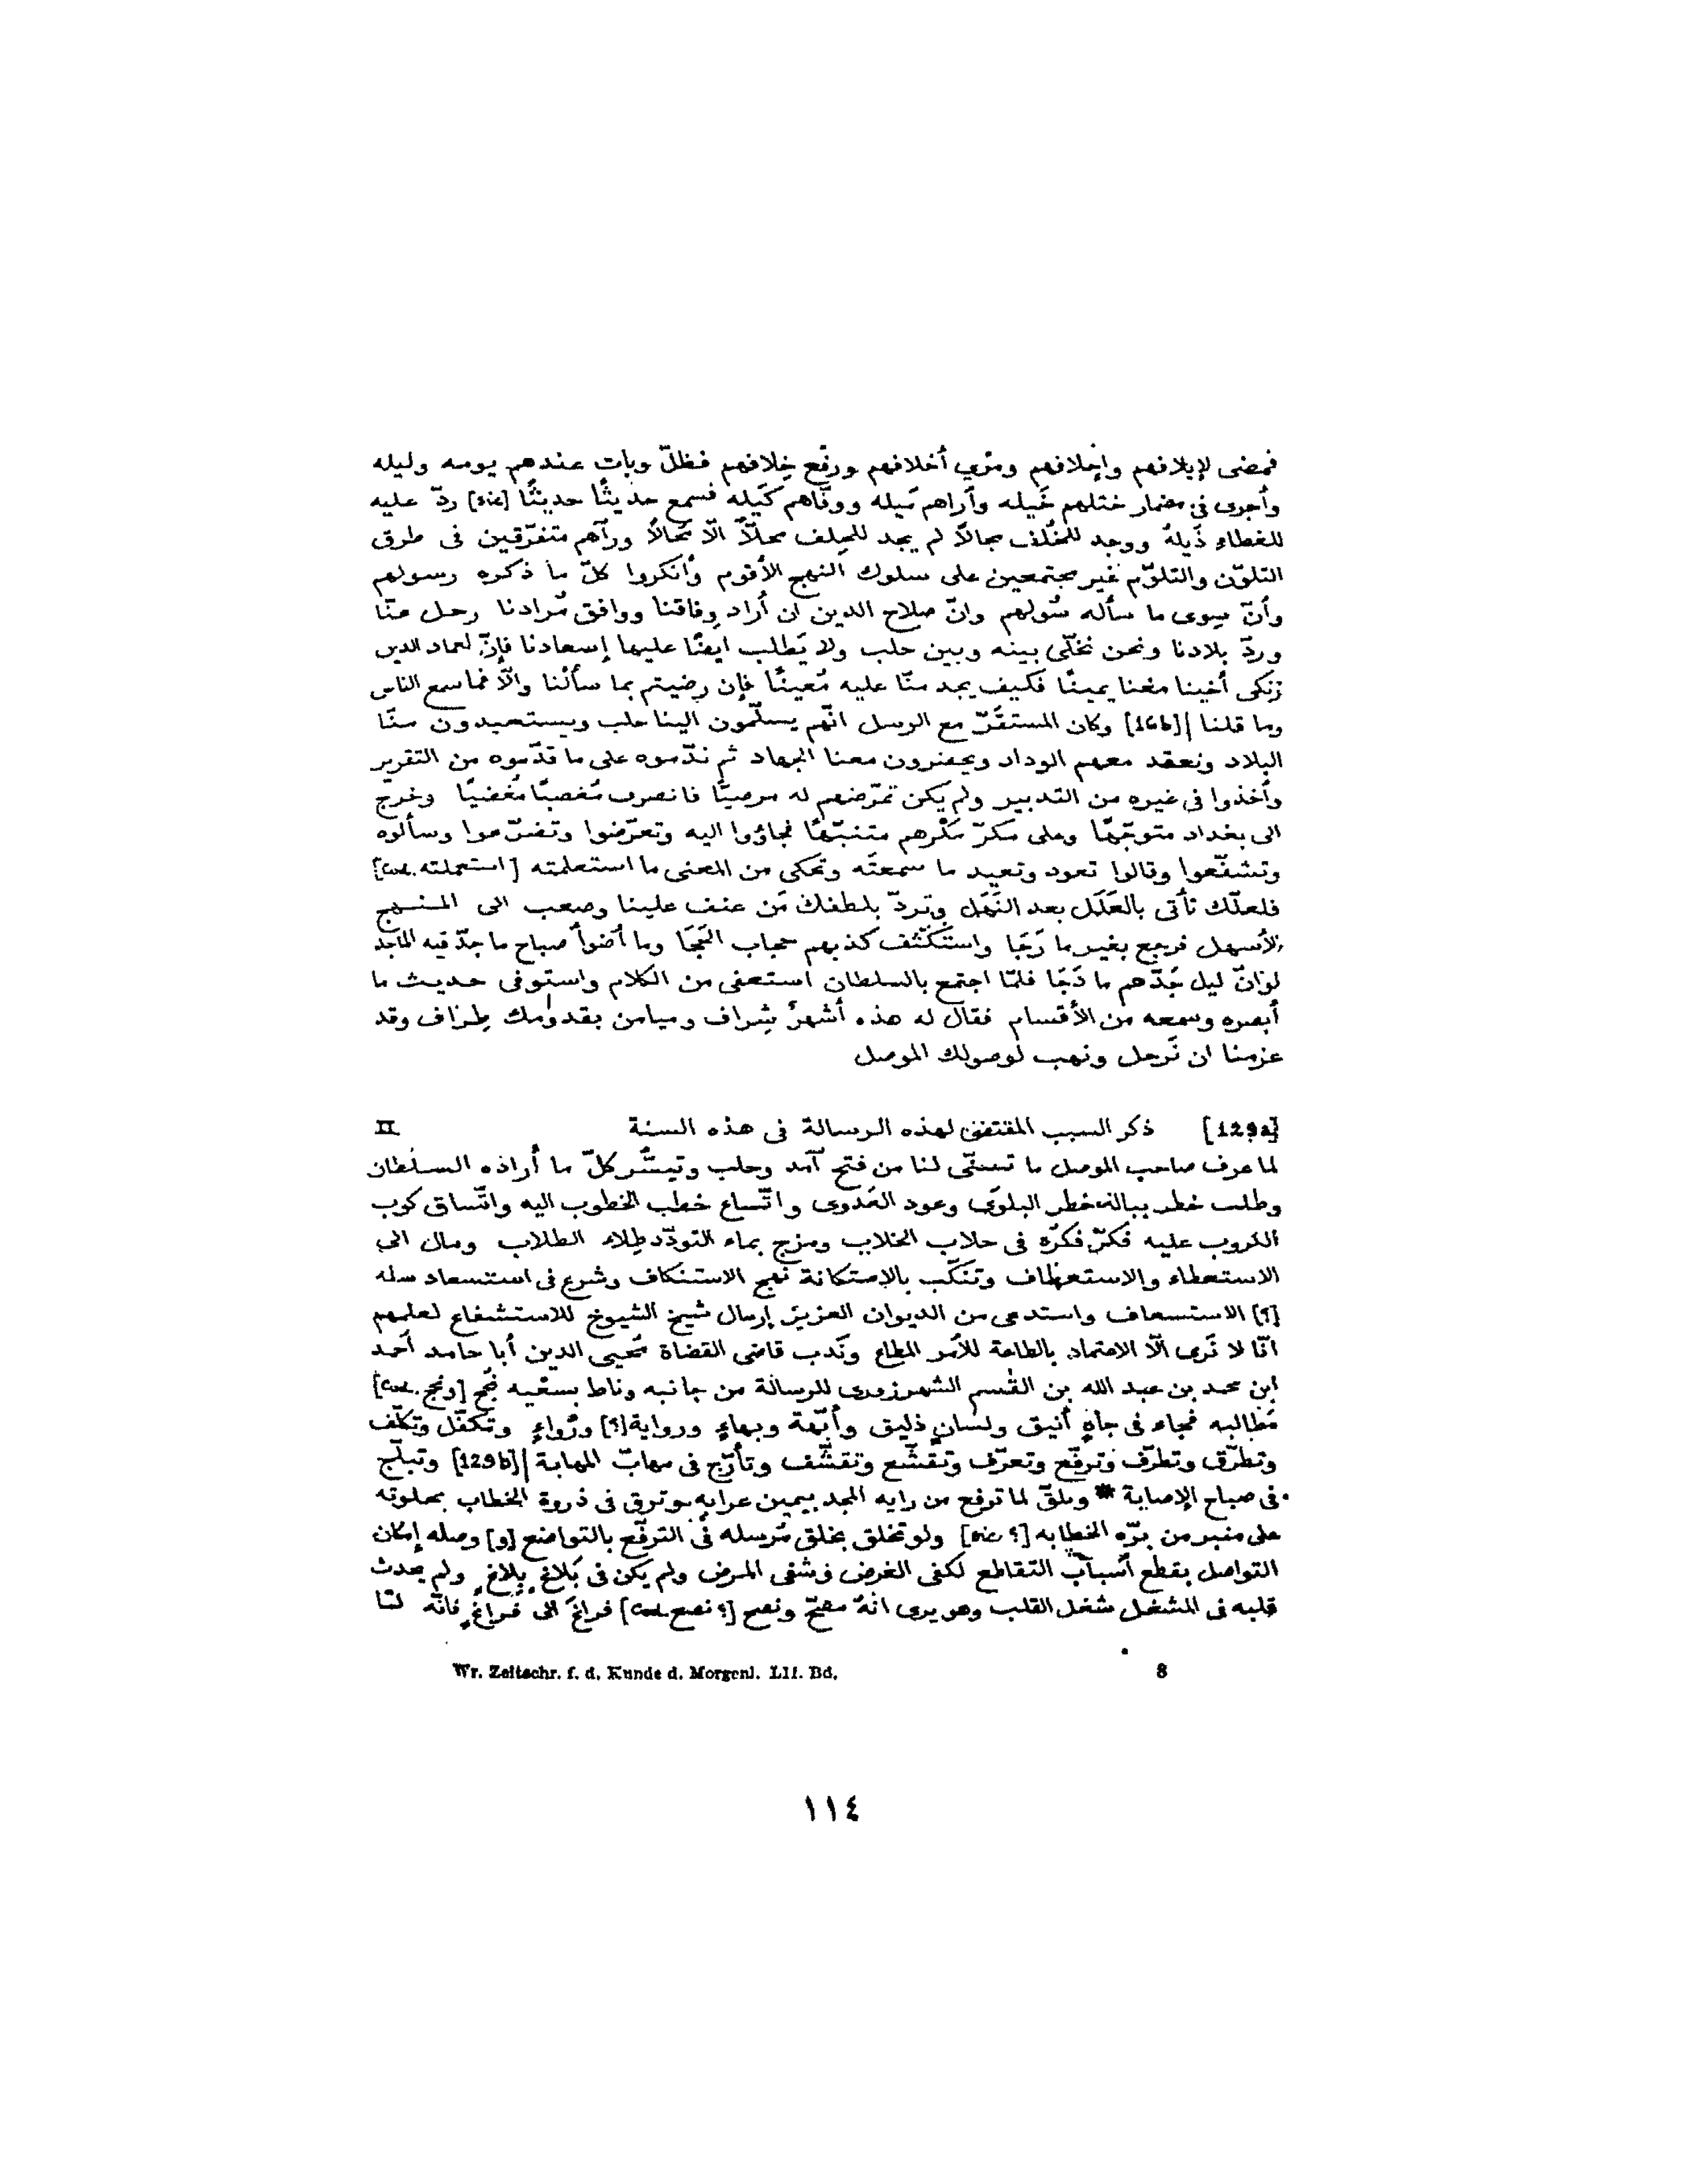 فمضى لإيلافهم وإحلافهم ومَرْي أخلافهم ورفع خِلافهم فظلّ وبات عندهم يومه وليله
وأجرى فى مضمار ختلهم خَيله وأراهم مَيله ووفّاهم كَيله فسمع حديثًا حديثًا [sic] ردّ عليه
للغطاء ذَيلهُ ووجد للخُلف مجالاً لم يجد للحِلف محلاًّ الّا مُحالاً ورآهم متفرّقين فى طرق
التلوّن والتلوّم غير مجتمعين على سلوك النهج الأقوم وأنكروا كلّ ما ذكره رسولهم
وأنّ سِوى ما سأله سُولهم وانّ صلاح الدين ان أراد وِفاقنا ووافق مُرادنا رحل عنّا
وردّ بلادنا ونحن نخلّى بينه وبين حلب ولا يَطلب ايضًا عليها إسعادنا فإنّ لعماد الدين
زنكى أخينا معنا يمينًا فكيف يجد منّا عليه مُعينًا فإن رضيتم بما سألْنا والّا فما سمع الناس
وما قلنا |[16b] وكان المستقَرّ مع الرسل انّهم يسلّمون الينا حلب ويستعيدون منّا
البلاد ونعقد معهم الوداد ويحضرون معنا الجهاد ثم ندّموه على ما قدّموه من التقرير
وأخذوا فى غيره من التدبير ولم يكن تمرّضهم له مرضيًّا فانصرف مُغضبًا مُغضيًا وخرج
الى بغداد متوجّهًا وعلى مكرّ مَكْرهم متنبّهًا فجاؤوا اليه وتعرّضوا وتضرّعوا وسألوه
وتشفّعوا وقالوا تعود وتعيد ما سمعتَه وتحكى من المعنى ما استعلمته [استعملته .Cod]
فلعلّك تأتى بالعَلَل بعد النَهَل وتردّ بلطفك مَن عنف علينا وصعب الى المنهج
الأسهل فرجع بغير ما رَجَا واستكشف كذبهم حجاب الحَجَا وما أضوأ صباح ما جدّ فيه الماجد
لو انّ ليل جَدّهم ما دَجَا فلمّا اجتمع بالسلطان استعفى من الكلام واستوفى حديث ما
أبصره وسمعه من الأقسام فقال له هذه أشهرٌ شِراف وميامن بقدومك طِراف وقد
عزمنا ان نَرحل ونهب لوصولك الموصل
[129a] ذكر السبب المقتضى لهذه الرسالة فى هذه السنة II
لما عرف صاحب الموصل ما تسنّى لنا من فتح آمد وحلب وتيسُّر كلّ ما أراده السلطان
وطلب خطر بباله خطر البلوَى وعود العَدوى واتّساع خطب الخطوب اليه واتّساق كوب
الكروب عليه فكرّ فكرُه فى حلاب الخلاب ومزج بماء التودّد طِلاء الطلاب ومال الى
الاستعطاء والاستعطاف وتنكّب بالاستكانة نهج الاستنكاف وشرع فى استسعاد سله
[؟] الاستسعاف واستدعى من الديوان العزيز إرسال شيخ الشيوخ للاستشفاع لعلمهم
انّا لا نَرى الّا الاعتماد بالطاعة للأمر المطاع ونَدب قاضى القضاة مُحيى الدين أبا حامد أحمد
ابن محمد بن عبد الله بن القٰسم الشهرزورى للرسالة من جانبه وناط بسعْيه نُجح [ونجح .Cod]
مَطالبه فجاء فى جاهٍ أنيق ولسانٍ ذليق وأُبّهة وبهاءٍ ورواية[؟] ورُواءٍ وتكفّل وتكلّف
وتطرّق وتطرّف وترفّع وتعرّف وتقشّع وتقشّف وتأرّج فى مهابّ المهابة |[129b] وتبلّج
فى صباح الإصابة * وتلقّ لما ترفع من رايه المجد بيمين عرابه وترقى فى ذروة الخطاب بحلوته
على منبر من برّه الخطابه [؟ sic] ولو تخلق بخلق مُرسله فى الترفّع بالتواضع [و] وصله إمكان
التواصل بقطع أسباب التقاطع لكفى الغرض وشفى المرض ولم يكن فى بَلاغٍ بِلاغٍ ولم يحدث
قلبه فى المشغل شغل القلب وهو يرى انهُ مصحّ ونصح [؟ نصح .Cod] فراغَ الى فراغٍ فانّه لمّا
Wr. Zeitschr. f. d. Kunde d. Morgenl. LII. Bd. 8
١١٤